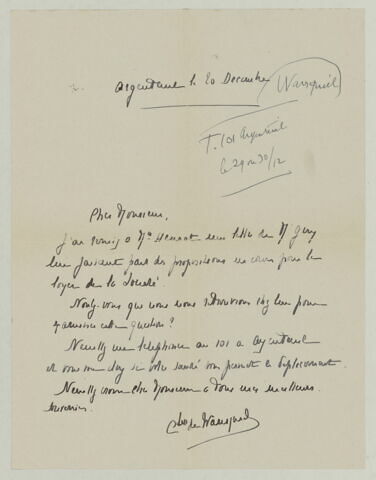 Argenteuil le 20 Décembre
Warequiel
T. 101 Argenteuil
le 29 ou 30/12
Cher Monsieur,
J'ai remis à Me une lettre de M
lui faisant part des propositions en cours pour le
loyer de la Société.
Voulez-vous que nous nous retrouvions chez lui pour
examiner cette question?
Veuillez me téléphoner au 101 à Argenteuil
et vous me si votre santé vous permet ce déplacement.
Veuillez croire cher Monsieur à tous mes meilleurs
souvenirs.